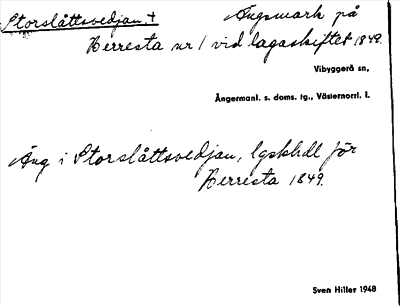 Storslåttsvedjan + Ängsmark på
Herresta nr 1 vid lagaskiftet 1849.
Vibyggerå sn,
Ångermanl. s. doms. tg., Västernorrl. l.
Äng i Storslåttsvedjan, lgskhdl för
Herresta 1849.
Sven Hiller 1948